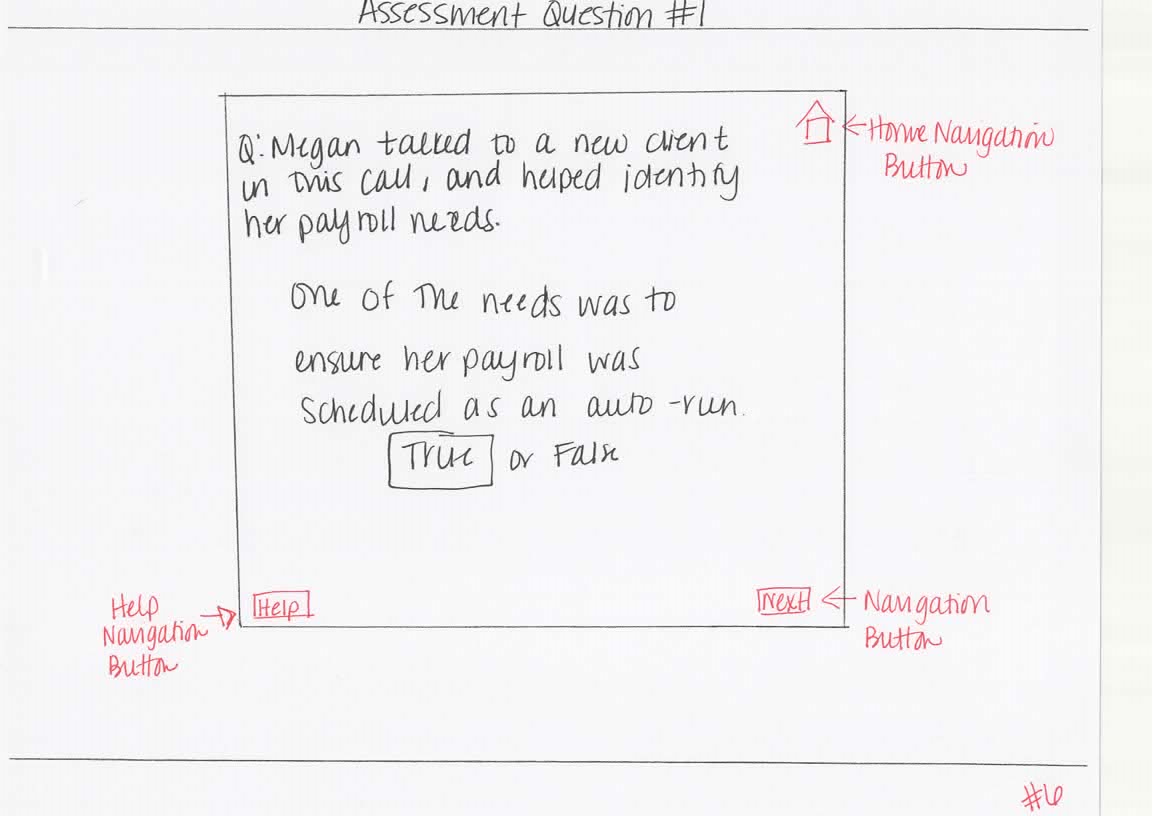 Assessment Question #1
Q: Megan talked to a new client
in this call, and helped identify
her payroll needs.
One of the needs was to
ensure her payroll was
scheduled as an auto-run.
True or False
Home Navigation
Button
Help
Next
Help
Navigation
Button
Navigation
Button
#6